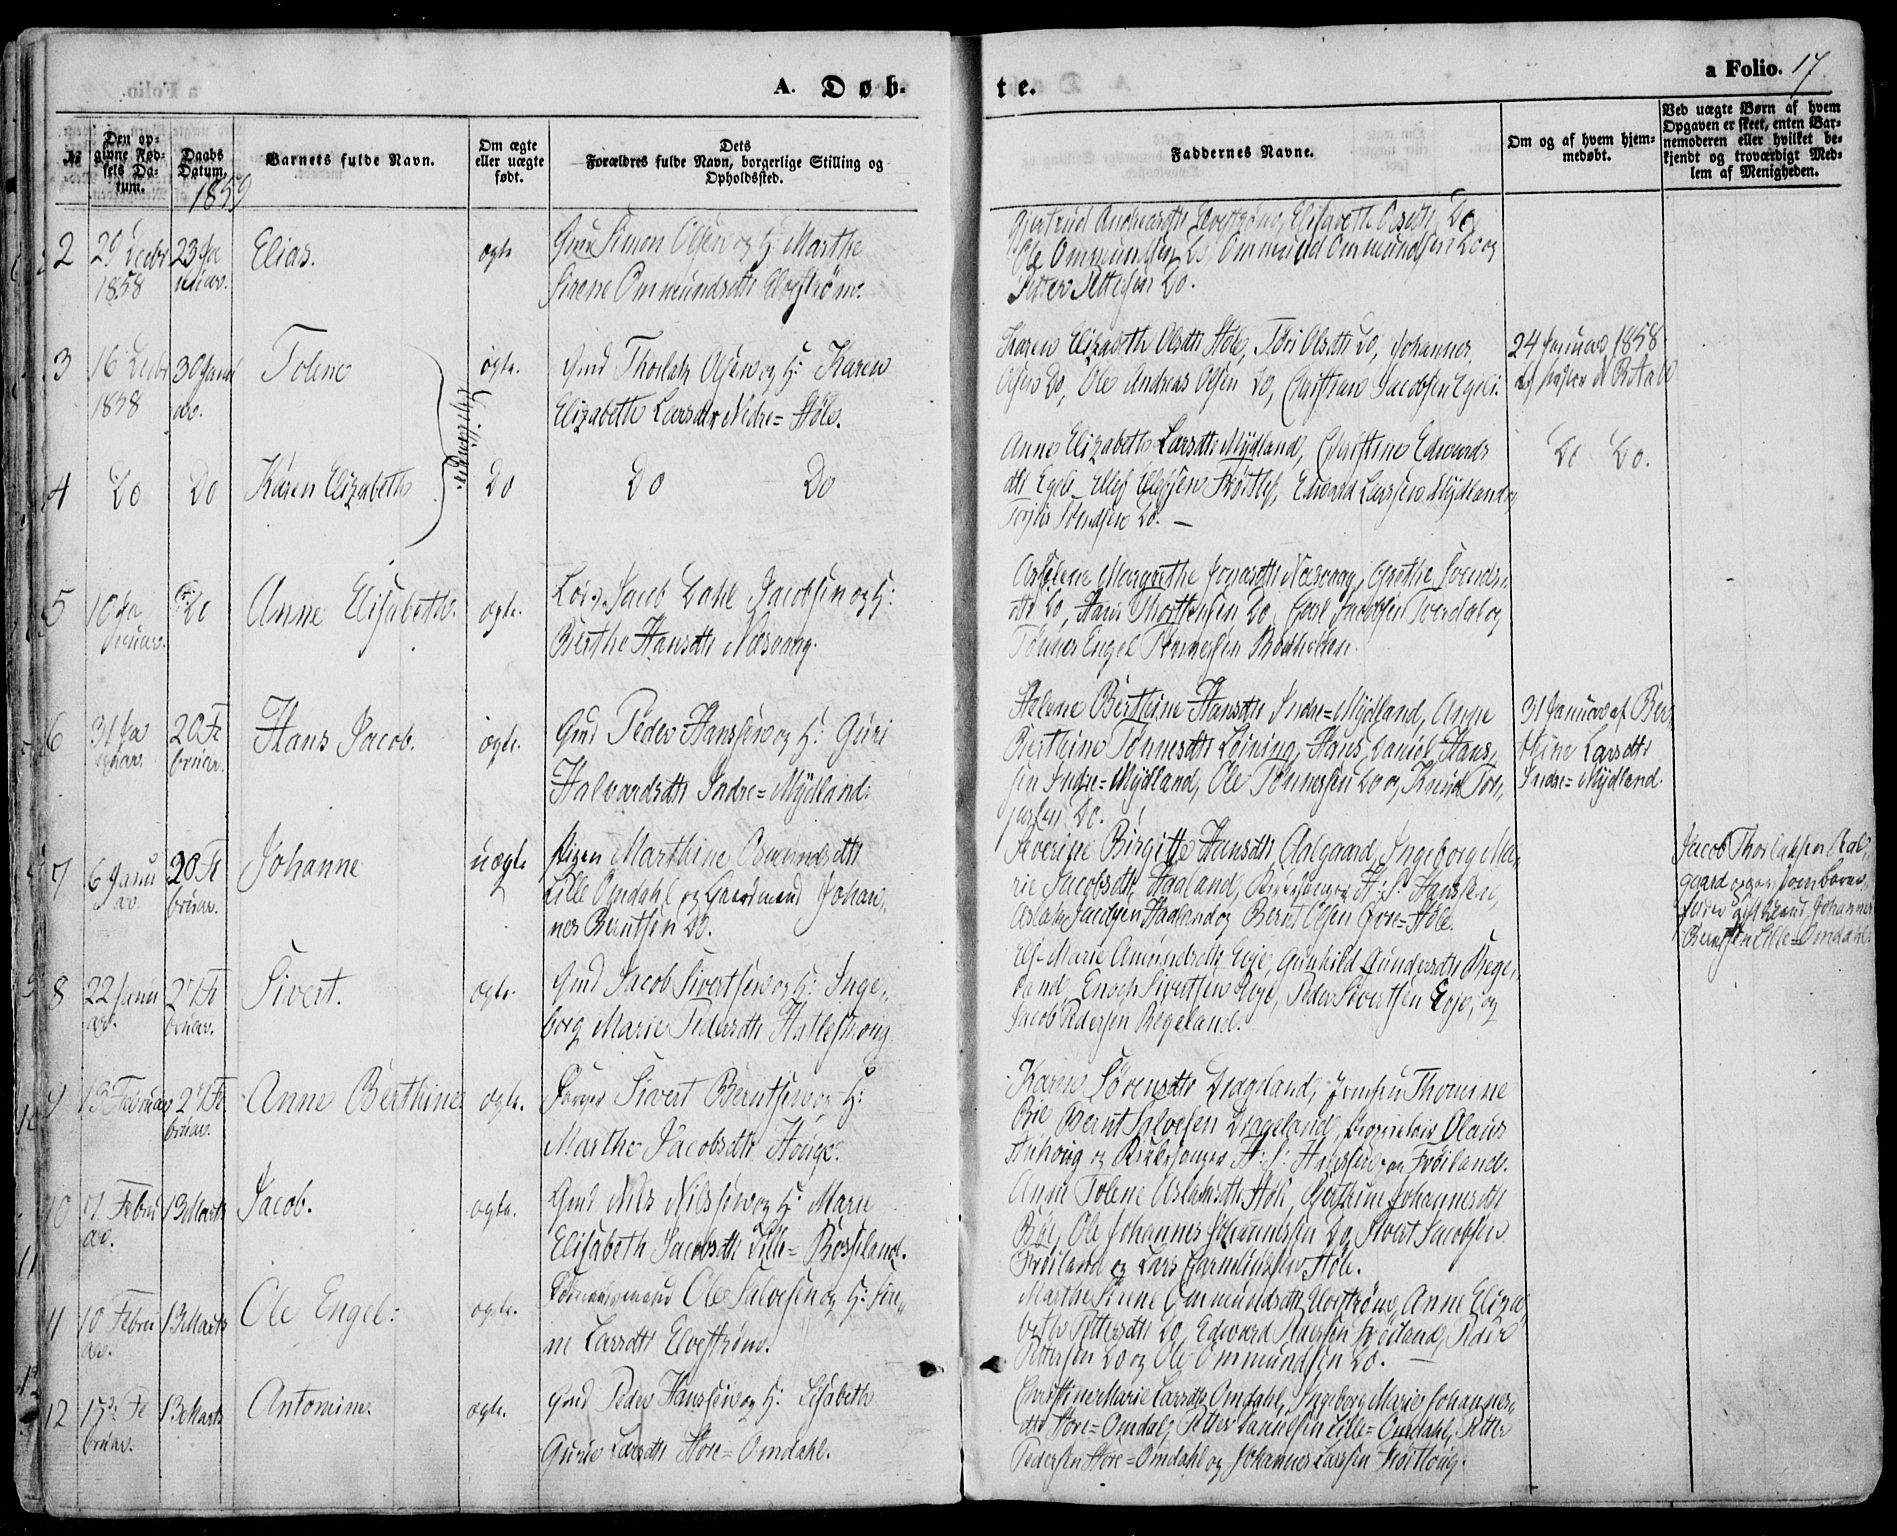 A. Døb-
te.
a Folio. 17
№
Den op-
givne Fød-
sels Da-
tum.
Daabs
Datum.
1859
Barnets fulde Navn.
Om ægte
eller uægte
født.
Dets
Forældres fulde Navn, borgerlige Stilling og
Opholdssted.
Faddernes Navne.
Om og af hvem hjem-
medøbt.
Ved uægte Børn af hvem
Opgaven er skeet, enten Bar-
nemoderen eller hvilket be-
kjendt og troværdigt Med-
lem af Menigheden.
2
29 Decbr
1858
23 Ja
nuar.
Elias.
ægte
Simon Olsen og H: Marthe
Sirene Ommundsdtr Elvestrøm.
Gjertrud Andreasdtr Elvestrøm, Elisabeth Olsdtr Do,
Ole Ommundsen Do, Ommund Ommundsen Do og
Petter Pettersen Do.
3
16 Decbr
1858
30 Janu
ar.
Tolene
Tvillinger.
ægte.
Gmd Thorlak Olsen og H: Karen
Elizabeth Larsdtr Nedre=Høle.
Karen Elizabeth Olsdtr Høle, Tori Olsdtr Do, Johannes
Olsen Do, Ole Andreas Olsen Do, Christian Jacobsen Egeli.
24 Januar 1858
4
Do
Do
Karen Elizabeth
Do
Do Do
Anne Elizabeth Larsdtr Mydland, Christine Edvards
dtr Egeli, Ellef Ellefsen Frøitlog, Edvard Larsen Mydland og
Do.
Do Do.
5
10 Ja
nuar.
Do
Anne Elisabeth.
ægte.
Jacob Dahl Jacobsen og H:
Berthe Hansdtr Næsvaag.
Margrethe Jonasdtr Næsvaag, Grethe Svends
dtr Do, Hans Thorstensen Do, Carl Jacobsen Sverdal og
Tønnes Engel Tønnessen
6
31 Ja
nuar.
20 Fe
bruar.
Hans Jacob.
ægte.
Gmd Peder Hanssen og H: Guri
Halvardsdtr Indre=Mydland.
Helene Berthine Hansdtr Indre=Mydland, Anne
Berthine Tønnesdtr Løining, Hans Daniel Hans
sen Indre=Mydland, Ole Tønnessen Do og Knud Tor
Do.
31 Januar af Ber
thine Larsdtr
Indre=Mydland.
7
6 Janu
ar
20 Fe
bruar.
Johanne
uægte
Pigen Marthine Omundsdtr
Lille Omdahl og Gaardmand Johan
nes Berntsen Do.
Severine Birgitte Hansdtr Aalgaard, Ingeborg Ma
rie Jacobsdtr Haaland, Kirkesanger H. S. Hanssen,
Aslak Jacobsen Haaland og Bernt Olsen Øvre=Høle.
Jacob Thorlaksen Aal
gaard opgav som Barne
fader gift Mand Johannes
Berntsen Lille=Omdahl.
8
22 Janu
ar.
27 Fe
bruar.
Sivert.
ægte.
Gmd Jacob Sivertsen og H: Inge
borg Marie Pedersdtr Hatleskoug
Else Marie Amundsdtr Eeje, Gunhild Gundersdtr Rege
land, Enoch Sivertsen Eeje, Peder Sivertsen Eeje, og
Jacob Pedersen Regeland.
9
13 Januar
27 Fe
bruar.
Anne Berthine
ægte.
Sivert Berntsen og H:
Marthe Jacobsdtr Houge.
Karen Sørensdtr Drageland, Jomfru Thomine
Bie, Bernt Salvesen Drageland, Olaus
og Kirkesanger H. S. Hanssen, Frøiland.
10
7 Febru
ar.
13 Marts
Jacob.
ægte.
Gmd Nils Nilssen og H: Marie
Elisabeth Jacobsdtr Lille=Rosseland.
Anne Tolene Aslaksdtr Høle, Berthine Johannesdtr
Bøe, Ole Johannes Johannessen Do, Sivert Jacobsen
Frøiland og Lars Cornelius Høle.
11
10 Febru
ar.
13 Marts
Ole Engel:
ægte.
Ole Salvesen og H: Sire
ne Larsdtr Elvestrøm.
Marthe Sirene Ommundsdtr Elvestrøm, Anne Eliza
beth Pettersdtr Do, Edward Pedersen Frøiland, Peder
Pettersen Do og Ole Ommundsen Do.
12
15de Fe
bruar.
13 Marts
Antomine.
ægte.
Gmd Peder Hanssen og H: Lisabeth
Gurine Larsdtr Store=Omdahl.
Christine Marie Larsdtr Omdahl, Ingeborg Marie Johannes
dtr Store=Omdal, Petter Danielsen Lille=Omdahl, Petter
Pedersen Store=Omdahl og Johannes Larsen Frøitlog.